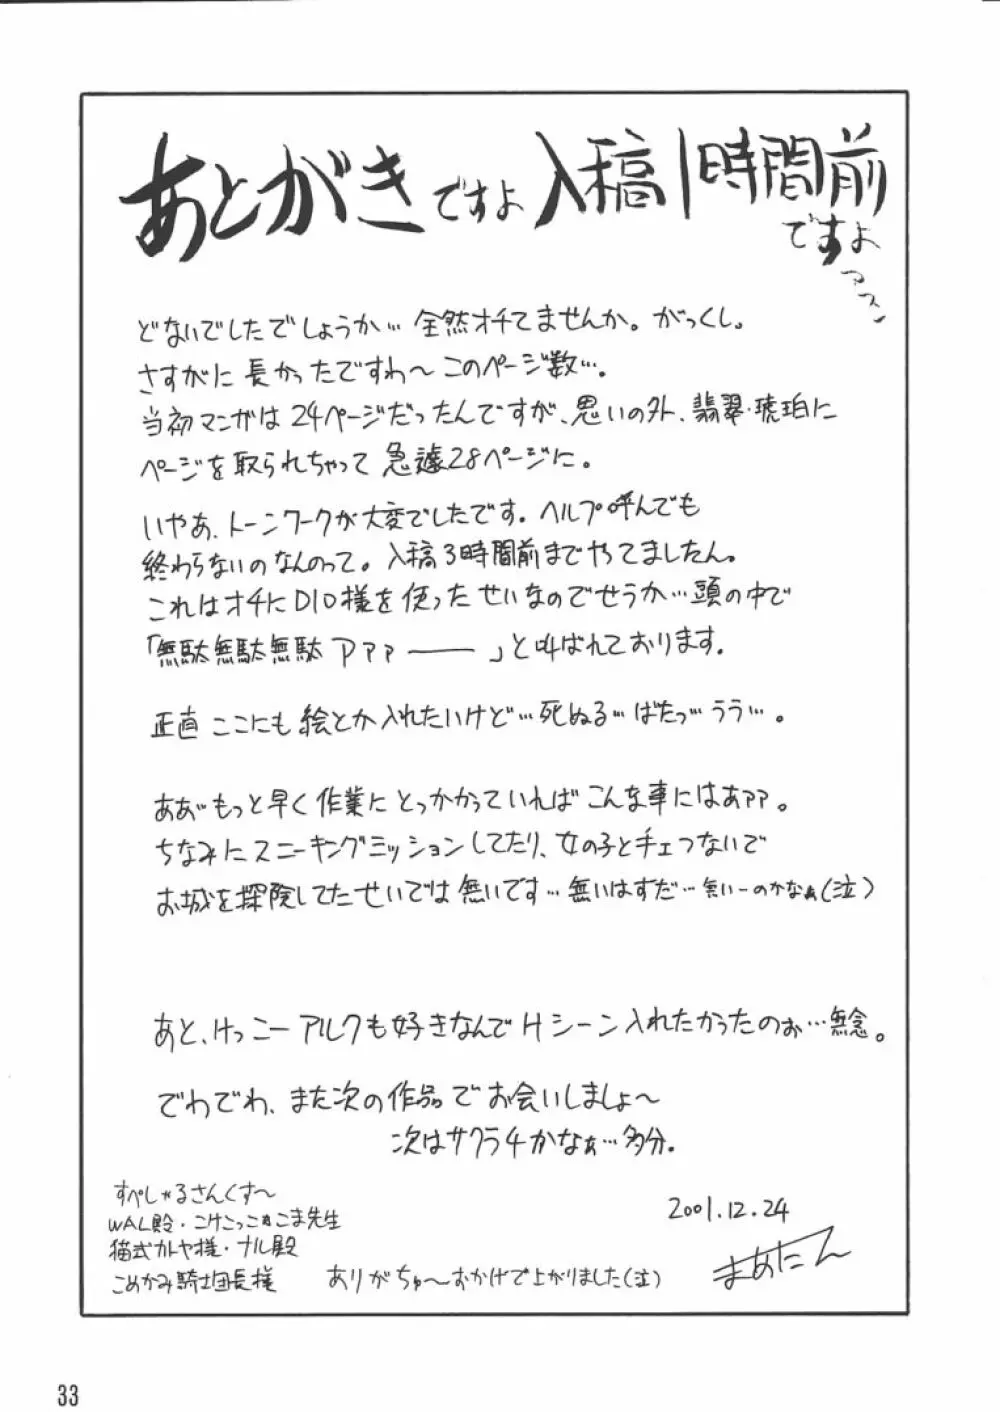 あとがきですよ 入稿1時間前
ですよ
どないでしたでしょうか…全然オチてませんか。がっくし。
さすがに長かったですわ〜このページ数…。
当初マンガは24ページだったんですが、思いの外、翡翠・琥珀に
ページを取られちゃって急遽28ページに。
いやあ、トーンワークが大変でしたです。ヘルプ呼んでも
終わらないのなんのって。入稿3時間前までやってましたん。
これはオチにDIO様を使ったせいなのでせうか…頭の中で
「無駄無駄無駄アァァ───」と叫ばれております。
正直ここにも絵とか入れたいけど…死ぬる…ばたっ…うう…。
ああ…もっと早く作業にとっかかっていればこんな事にはぁァァ。
ちなみにスニーキングミッションしてたり、女の子と手ェつないで
お城を探険してたせいでは無いです…無いはずだ…無いーのかなぁ(泣)
あと、けっこーアルクも好きなんでHシーン入れたかったのぉ…無念。
でわでわ、また次の作品でお会いしましょ〜
次はサクラ4かなぁ…多分。
すぺしゃるさんくす〜
WAL殿・こけこっこぉこま先生
猫式カトヤ様・ナル殿
こめかみ騎士団長様
ありがちゅ〜おかげで上がりました(泣)
2001.12.24
まあたん
33